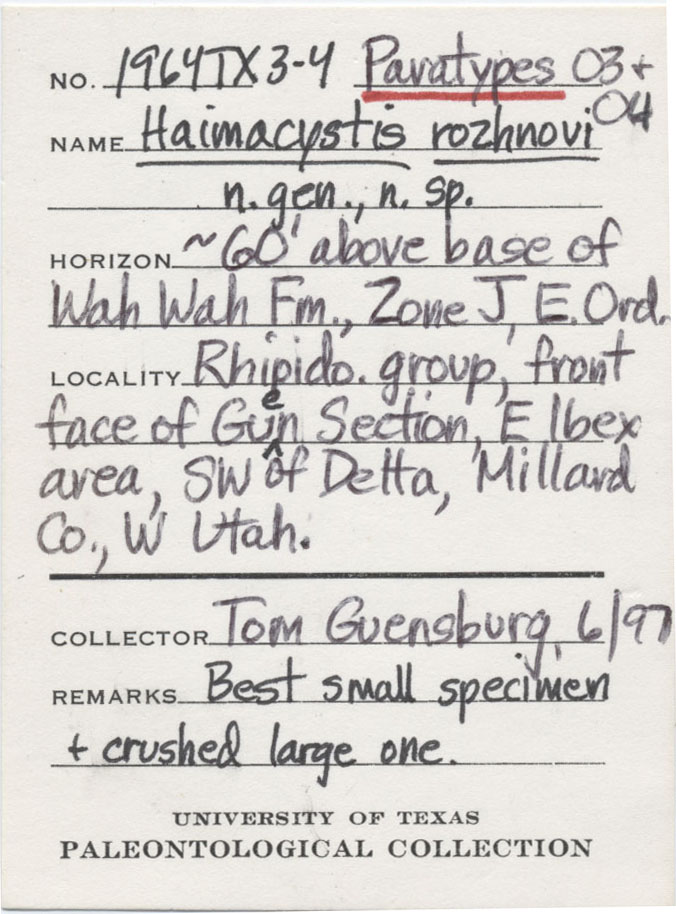 NO. 1964TX3-4 Paratypes 03 +
04
NAME Haimacystis rozhnovi
n. gen., n. sp.
HORIZON ~60' above base of
Wah Wah Fm., Zone J, E. Ord.
LOCALITY Rhipido. group, front
e
face of Gun Section, E Ibex
area, SW of Delta, Millard
Co., W Utah.
COLLECTOR Tom Guensburg, 6/97
REMARKS Best small specimen
+ crushed large one.
UNIVERSITY OF TEXAS
PALEONTOLOGICAL COLLECTION